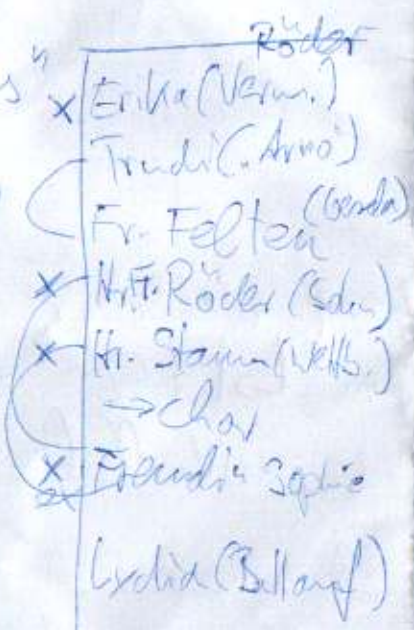 Röder
x Erika (Verm.)
Trudi (Arno)
Fr. Felten (Gerda)
x Röder
x Hr. Stamm
→ Chor
x Freundin Sophie
Lydia